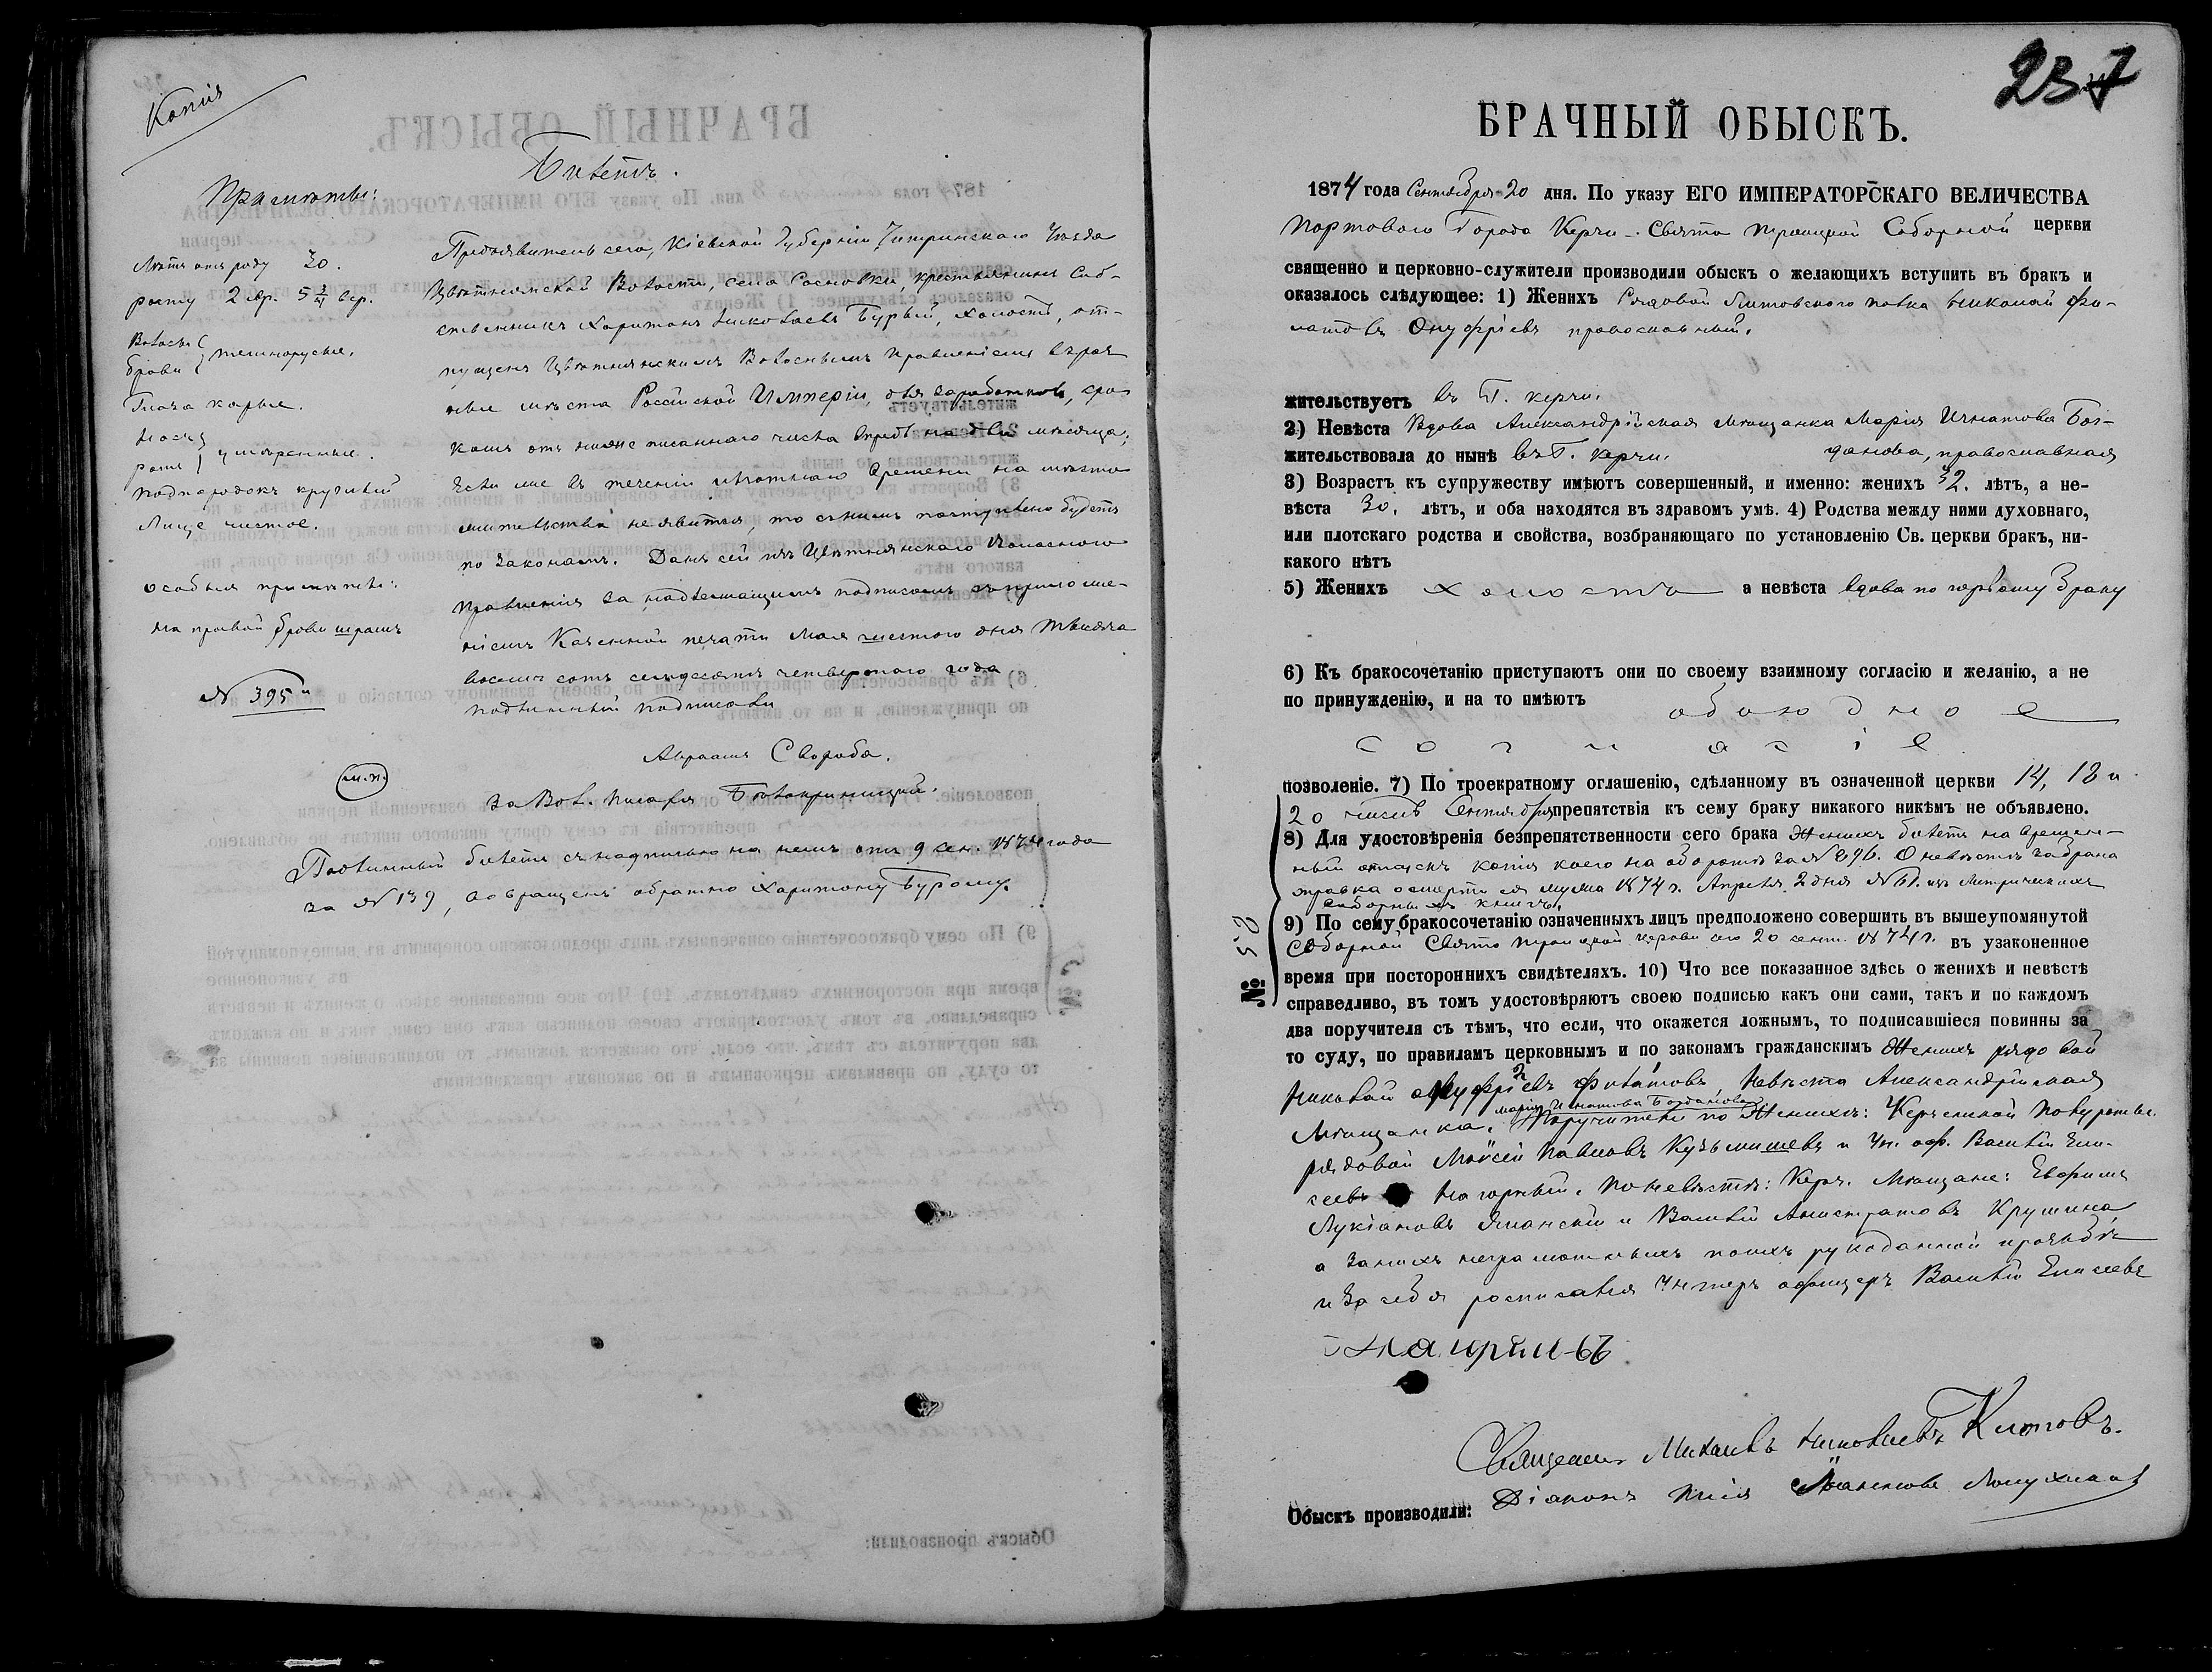 Копія
Билетъ.
Примѣты:
Лѣтъ отъ роду 30.
росту 2 ар. 5 3/4 вер.
Волосы
брови } темнорусые.
Глаза карые.
Носъ
ротъ } умѣренные.
подбородокъ круглый
Лице чистое.
особыя примѣты:
на правой брови шрамъ
№ 395й
Предъявитель сего, Кіевской Губерніи Чигринскаго Уѣзда
Цвѣтнянской Волости, села Сосновки, крестьянинъ соб-
ственникъ Харитонъ Николаевъ Бурый, холостъ, от-
пущенъ Цвѣтнянскимъ Волоснымъ Правленіемъ въ раз
ные мѣста Россійской Имперіи, для заработковъ, сро
комъ отъ ниже писаннаго числа впредь на два мѣсяца;
Если же въ теченіи льготнаго времени на мѣсто
жительства не явится, то съ нимъ поступлено будетъ
по законамъ. Данъ сей изъ Цвѣтнянскаго Волоснаго
Правленія за надлежащимъ подписомъ съ приложе-
ніемъ Казенной печати Мая шестого дня Тысяча
восемь сотъ семдесятъ четвертого года
подлинный подписали
Авраамъ Свороба.
м.п.
За Вол. писаря Билокриницкій.
Подлинный билетъ съ надписью на немъ отъ 9 сен. 1874 года
за № 139, возвращенъ обратно Харитону Бурому.
237
БРАЧНЫЙ ОБЫСКЪ.
1874 года Сентября 20 дня. По указу ЕГО ИМПЕРАТОРСКАГО ВЕЛИЧЕСТВА
Портоваго Города Керчи - Свято Троицкой Соборной церкви
священно и церковно-служители производили обыскъ о желающихъ вступить въ бракъ и
оказалось слѣдующее: 1) Женихъ Рядовой Литовского полка Николай Фи-
латовъ Онуфріевъ православный.
жительствуетъ въ Г. Керчи.
2) Невѣста Вдова Александрійская Мѣщанка Марія Игнатова Бог-
жительствовала до нынѣ въ Г. Керчи. данова, православная
3) Возрастъ къ супружеству имѣютъ совершенный, и именно: женихъ 32. лѣтъ, а не-
вѣста 30. лѣтъ, и оба находятся въ здравомъ умѣ. 4) Родства между ними духовнаго,
или плотскаго родства и свойства, возбраняющаго по установленію Св. церкви бракъ, ни-
какого нѣтъ
5) Женихъ холостъ а невѣста вдова по первому браку
6) Къ бракосочетанію приступаютъ они по своему взаимному согласію и желанію, а не
по принужденію, и на то имѣютъ обоюдное
согласіе
позволеніе. 7) По троекратному оглашенію, сдѣланному въ означенной церкви 14, 18 и
20 числъ Сентября препятствія къ сему браку никакого никѣмъ не объявлено.
8) Для удостовѣренія безпрепятственности сего брака Женихъ билетъ на времен-
ный отпускъ копія коего на оборотѣ за № 896. О невѣстѣ забрана
справка о смерти ея мужа 1874 г. Апреля 2 дня № 61. изъ Метрическихъ
соборныхъ книгъ.
9) По сему бракосочетанію означенныхъ лицъ предположено совершить въ вышеупомянутой
Соборной Свято Троицкой церкви сего 20 сент. 1874 г. въ узаконенное
время при постороннихъ свидѣтеляхъ. 10) Что все показанное здѣсь о женихѣ и невѣстѣ
справедливо, въ томъ удостовѣряютъ своею подписью какъ они сами, такъ и по каждомъ
два поручителя съ тѣмъ, что если, что окажется ложнымъ, то подписавшіеся повинны за
то суду, по правиламъ церковнымъ и по законамъ гражданскимъ Женихъ рядовой
№ 58
Николай Онуфріевъ Филатовъ, Невѣста Александрійская
Марія Игнатова Богданова
Мѣщанка. Поручители по Женихѣ: Керченской полуроты
рядовой Моисей Павловъ Кузьмишевъ и Ун. оф. Василій Ели-
сеевъ Нагорный. По невѣстѣ: Керч. Мѣщане: Евфимъ
Лукіановъ Яланскій и Василій Анистратовъ Крушина
а за нихъ неграмотныхъ по ихъ рукоданной прозьбѣ
и за себя росписался Унтеръ офицеръ Василій Елисеевъ
Нагорный
Священникъ Михаилъ Николаевъ Китовъ.
Обыскъ производили: Діаконъ Илія